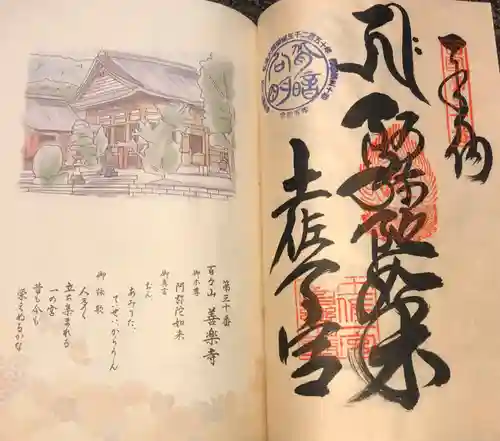 奉納
阿弥陀如来
土佐一ノ宮
第三十番
百々山 善楽寺
御本尊
阿弥陀如来
御真言
おん
あみりた
ていせいからうん
御詠歌
人多く
立ち集まれる
一の宮
昔も今も
栄えぬるかな